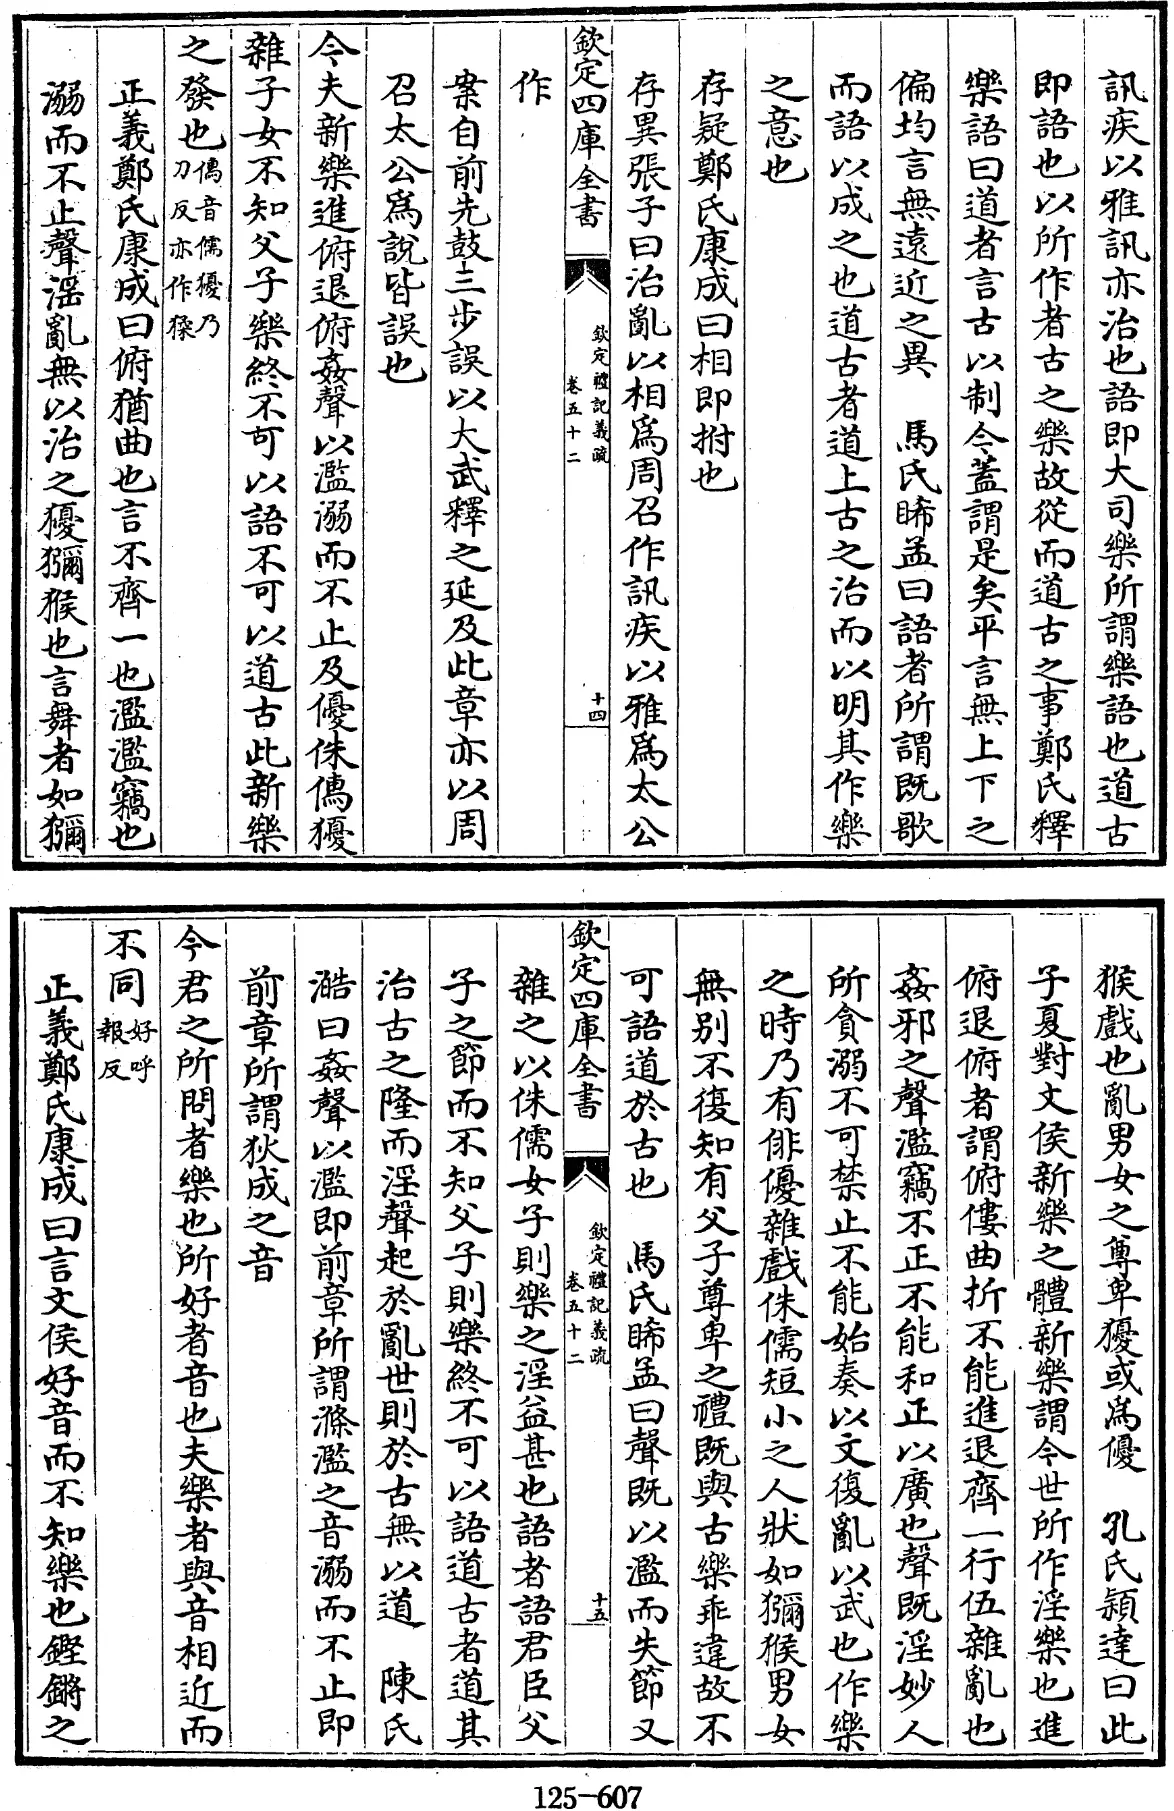 訊疾以雅訊亦治也語即大司樂所謂樂語也道古
即語也以所作者古之樂故從而道古之事鄭氏釋
樂語曰道者言古以制今蓋謂是矣平言無上下之
偏均言無遠近之異　馬氏晞孟曰語者所謂既歌
而語以成之也道古者道上古之治而以明其作樂
之意也
存疑鄭氏康成曰相即拊也
存異張子曰治亂以相爲周召作訊疾以雅爲太公
欽定四庫全書
欽定禮記義疏
卷五十二
十四
作
案自前先鼓三步誤以大武釋之延及此章亦以周
召太公爲說皆誤也
今夫新樂進俯退俯姦聲以濫溺而不止及優侏儒獶
雜子女不知父子樂終不可以語不可以道古此新樂
之發也儒音儒獶乃
刀反亦作猱
正義鄭氏康成曰俯猶曲也言不齊一也濫濫竊也
溺而不止聲淫亂無以治之獶獼猴也言舞者如獼
猴戲也亂男女之尊卑獶或爲優　孔氏穎達曰此
子夏對文侯新樂之體新樂謂今世所作淫樂也進
俯退俯者謂俯僂曲折不能進退齊一行伍雜亂也
姦邪之聲濫竊不正不能和正以廣也聲既淫妙人
所貪溺不可禁止不能始奏以文復亂以武也作樂
之時乃有俳優雜戲侏儒短小之人狀如獼猴男女
無別不復知有父子尊卑之禮既與古樂乖違故不
可語道於古也　馬氏晞孟曰聲既以濫而失節又
欽定四庫全書
欽定禮記義疏
卷五十二
十五
雜之以侏儒女子則樂之淫益甚也語者語君臣父
子之節而不知父子則樂終不可以語道古者道其
治古之隆而淫聲起於亂世則於古無以道　陳氏
澔曰姦聲以濫即前章所謂滌濫之音溺而不止即
前章所謂狄成之音
今君之所問者樂也所好者音也夫樂者與音相近而
不同好呼
報反
正義鄭氏康成曰言文侯好音而不知樂也鏗鏘之
125-607